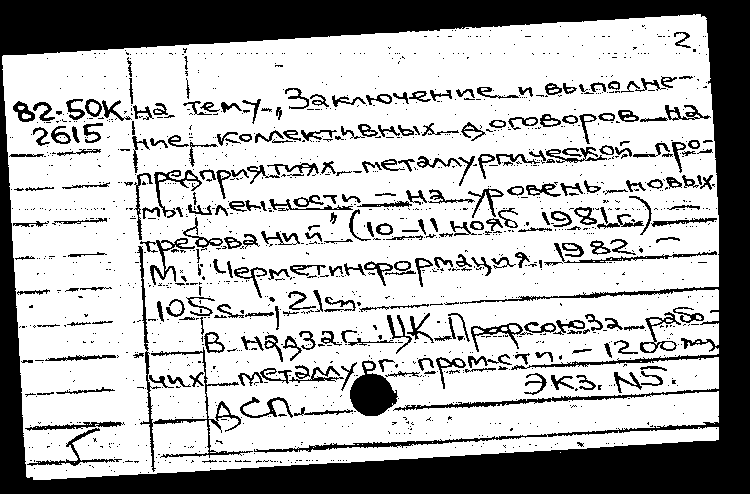 2.
82-50К на тему „Заключение и выполне-
2615 ние коллективных договоров на
предприятиях металлургической про-
мышленности – на уровень новых
требований" (10-11 нояб. 1981г.) –
М.: Черметинформация, 1982. –
105с. ; 21см.
В надзаг.: ЦК Профсоюза рабо-
чих металлург. пром-сти. – 1200 экз.
ДСП. Экз. N5.
5